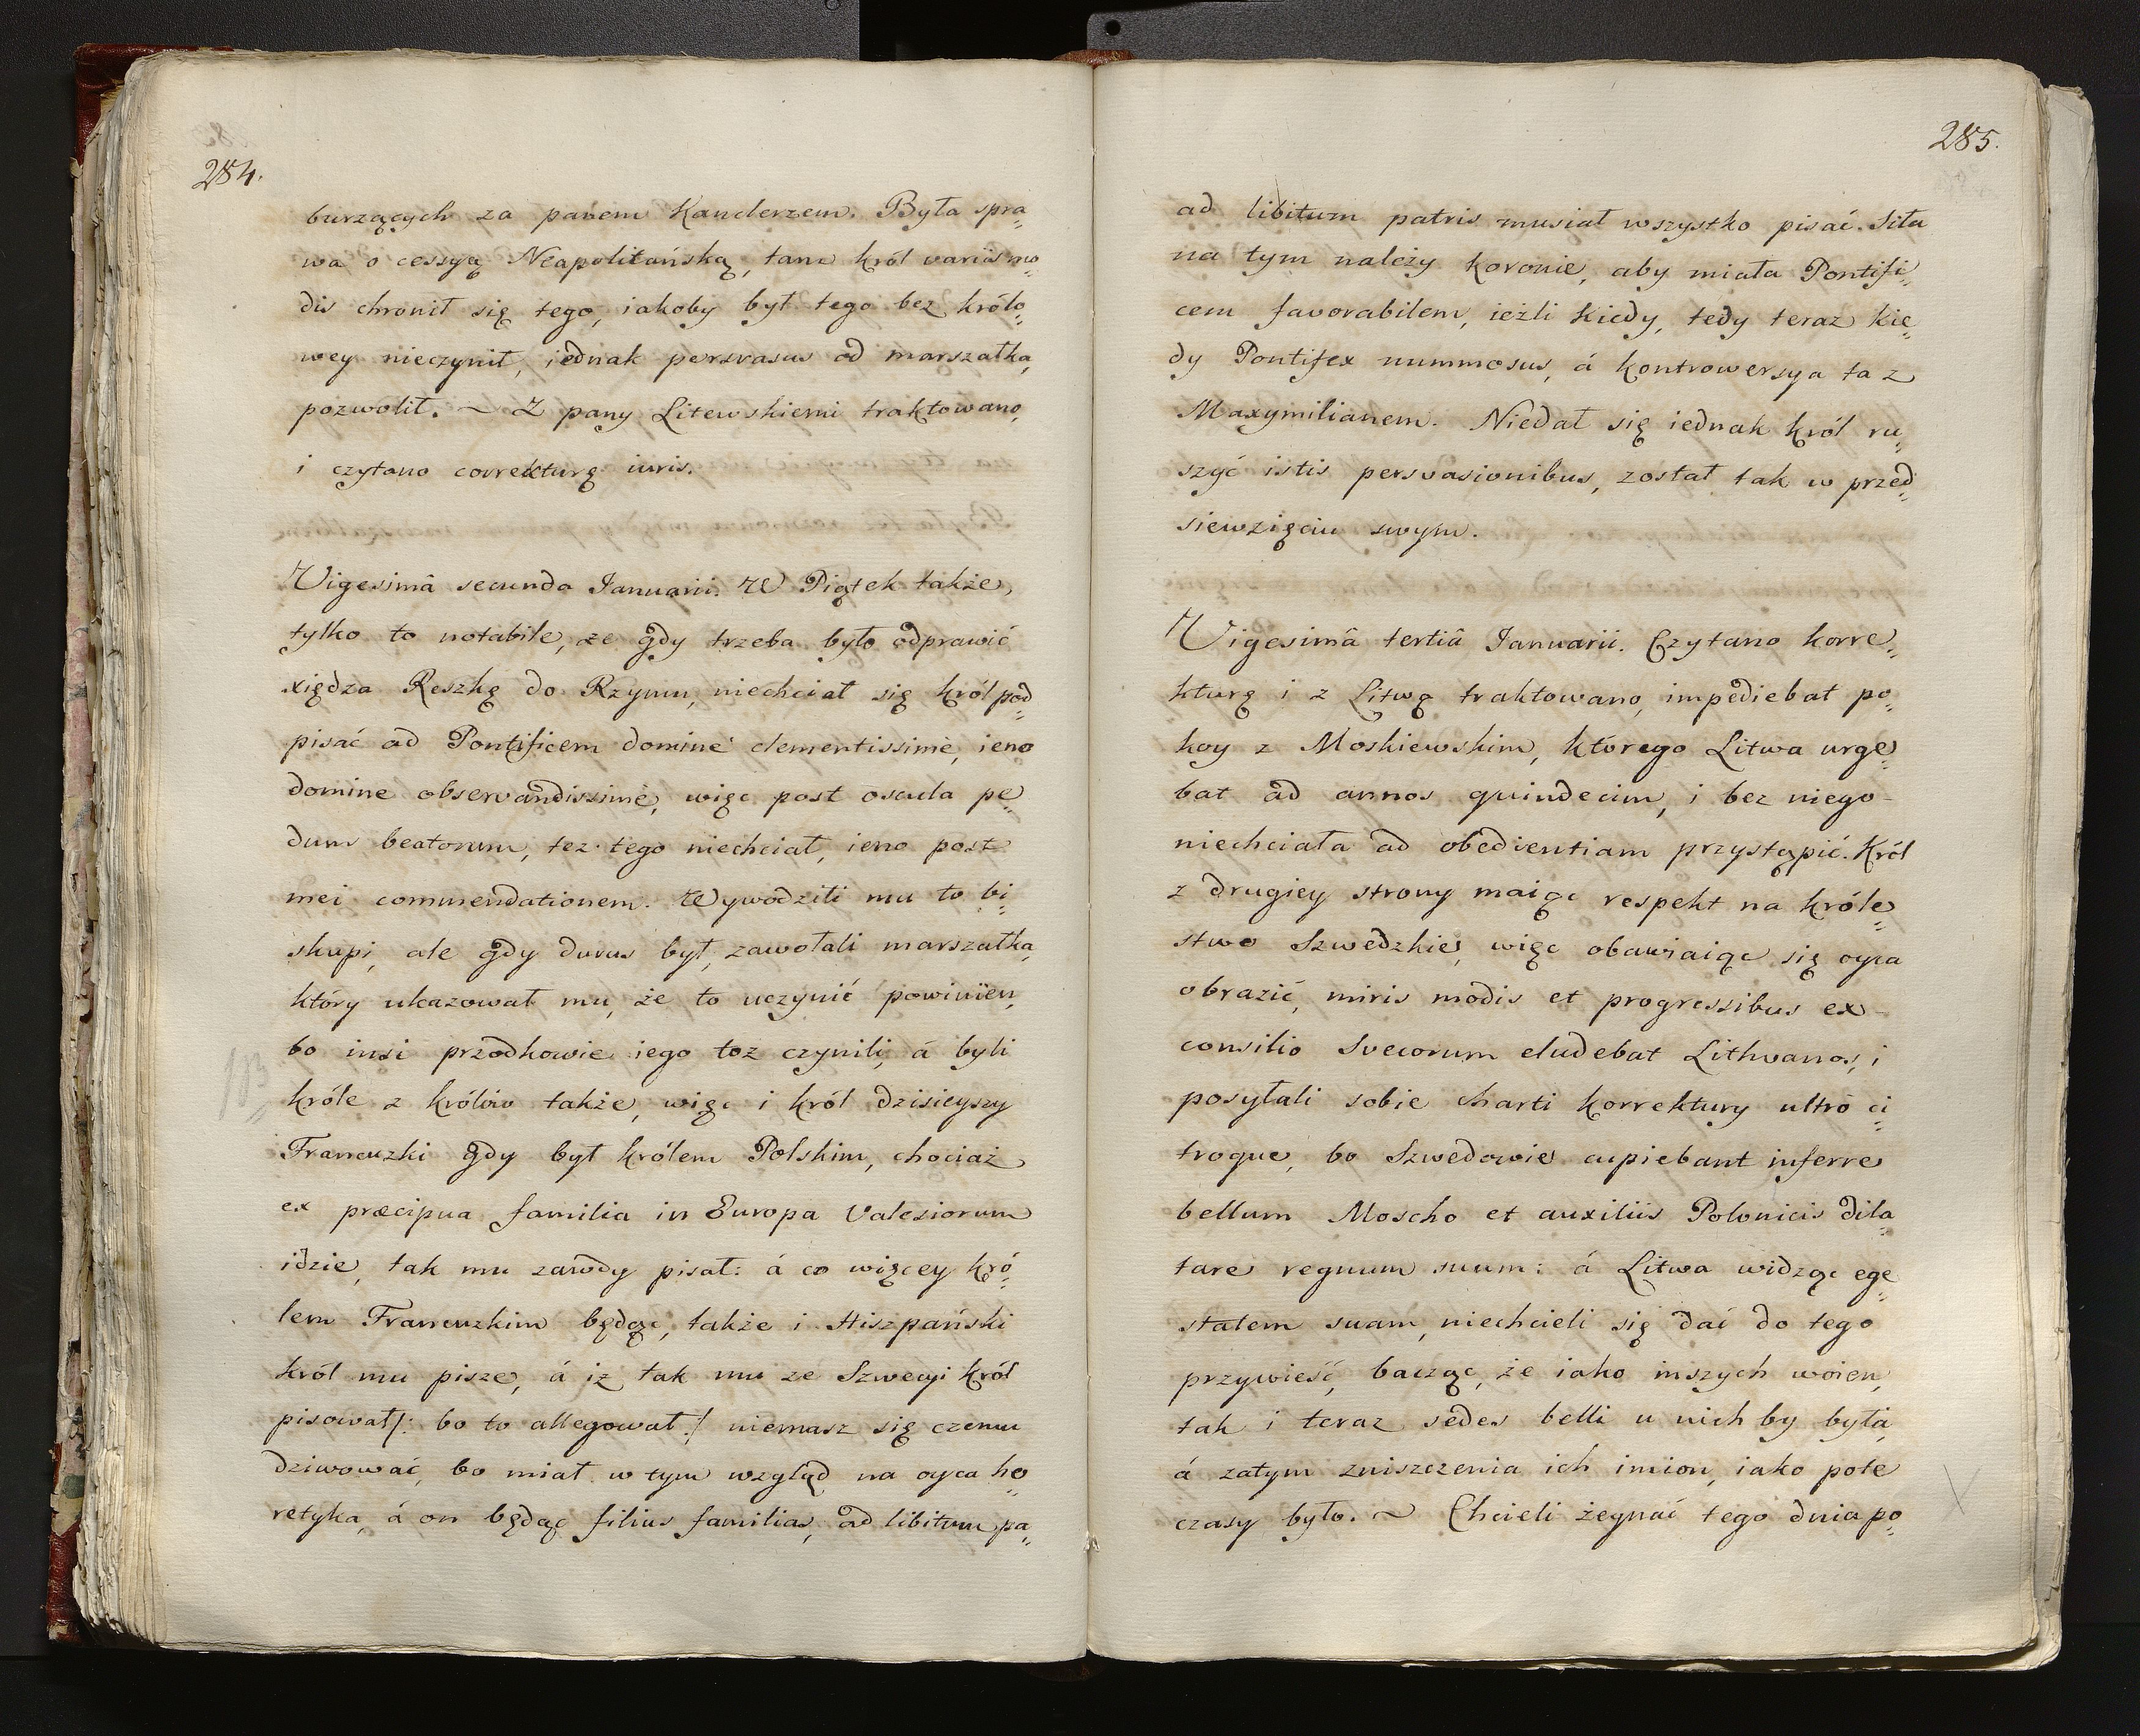 284.
burzących za panem Kanclerzem. Była spra„
wa o cessyą Neapolitańską, tam król variis mo„
dis chronił się tego, iakoby był tego bez królo„
wey nieczynił, iednak persvasus od marszałka,
pozwolił. ~ Z pany Litewskiemi traktowano,
i czytano correkturę iuris.
Vigesimâ secunda Ianuarii. W Piątek także,
tylko to notabile, ze gdy trzeba było odprawić
xiędza Reszkę do Rzymu, niechciał się król pod„
pisać ad Pontificem domine clementissime, ieno
domine observandissime, więc post oscula pe„
dum beatorum, tez tego niechciał, ieno post
mei commendationem. Wywodzili mu to bi„
skupi, ale gdy durus był, zawołali marszałka,
który ukazował mu, że to uczynić powinien,
bo insi przodkowie iego toz czynili, á byli
króle z królów także, więc i król dzisieyszy
Francuzki gdy był królem Polskim, chociaż
ex præcipua familia in Europa Valesiorum
idzie, tak mu zawdy pisał: á co więcey kró„
lem Francuzkim będąc, także i Hiszpański
król mu pisze, á iz tak mu ze Szwecyi król
pisował/: bo to allegował:/ niemasz się czemu
dziwować, bo miał w tym wzgląd na oyca he„
retyka, á on będąc filius familias, ad libitum pa„
285.
ad libitum patris musiał wszystko pisać. Siła
na tym należy koronie, aby miała Pontifi„
cem favorabilem, ieżli kiedy, tedy teraz kie„
dy Pontifex nummosus, á kontrowersya ta z
Maxymilianem. Niedał się iednak król ru„
szyć istis persvasionibus, został tak w przed„
siewzięciu swym.
Vigesimâ tertiâ Ianuarii. Czytano korre„
kturę i z Litwą traktowano, impediebat po„
koy z Moskiewskim, którego Litwa urge„
bat ad annos quindecim, i bez niego
niechciała ad obedientiam przystąpić. Król
z drugiey strony maiąc respekt na króle„
stwo Szwedzkie, więc obawiaiąc się oyca
obrazić, miris modis et progressibus ex
consilio Svecorum eludebat Lithvanos, i
posyłali sobie charti korrektury ultrò ci„
troque, bo Szwedowie cupiebant inferre
bellum Moscho et auxiliis Polonicis dila„
tare regnum suum: á Litwa widząc ege„
statem suam, niechcieli się dać do tego
przywieść, bacząc, że iako inszych woien,
tak i teraz sedes belli u nich by była,
á zatym zniszczenia ich imion, iako pote
czasy było. ~ Chcieli żegnać tego dnia po„